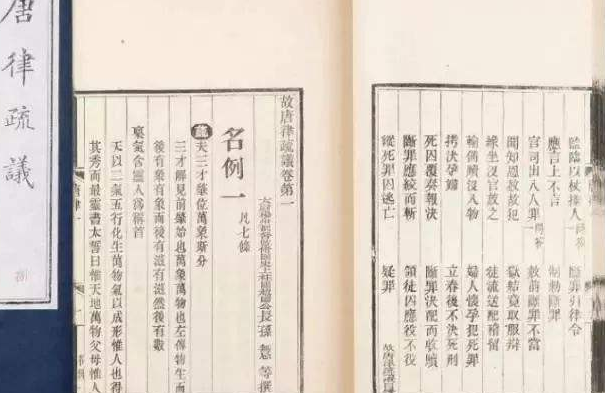 監臨以杖捶人 問答 斷罪引律令
應言上不言 制勅斷罪
官司出入人罪 問答 赦前斷罪不當
聞知恩赦故犯 獄結竟取服辯
緣坐沒官放之 徒流送配稽留
輸備贖沒入物 婦人懷孕犯死罪
拷決孕婦 立春後不決死刑
死囚覆奏報決 斷罪決配而收贖
斷罪應絞而斬 領徒囚應役不役
縱死罪囚逃亡 疑罪
故唐律疏議
故唐律疏議卷第一
國公長孫 無忌 等撰
名例一 凡七條
疏 夫三才肇位萬象斯分
三才解見前肇始也萬象萬物也左傳物生而
後有象有象而後有滋有滋然後有數
稟氣含靈人爲稱首
天以二氣五行化生萬物氣以成形惟人也得
其秀而最靈書太誓曰惟天地萬物父母惟人
唐律疏議